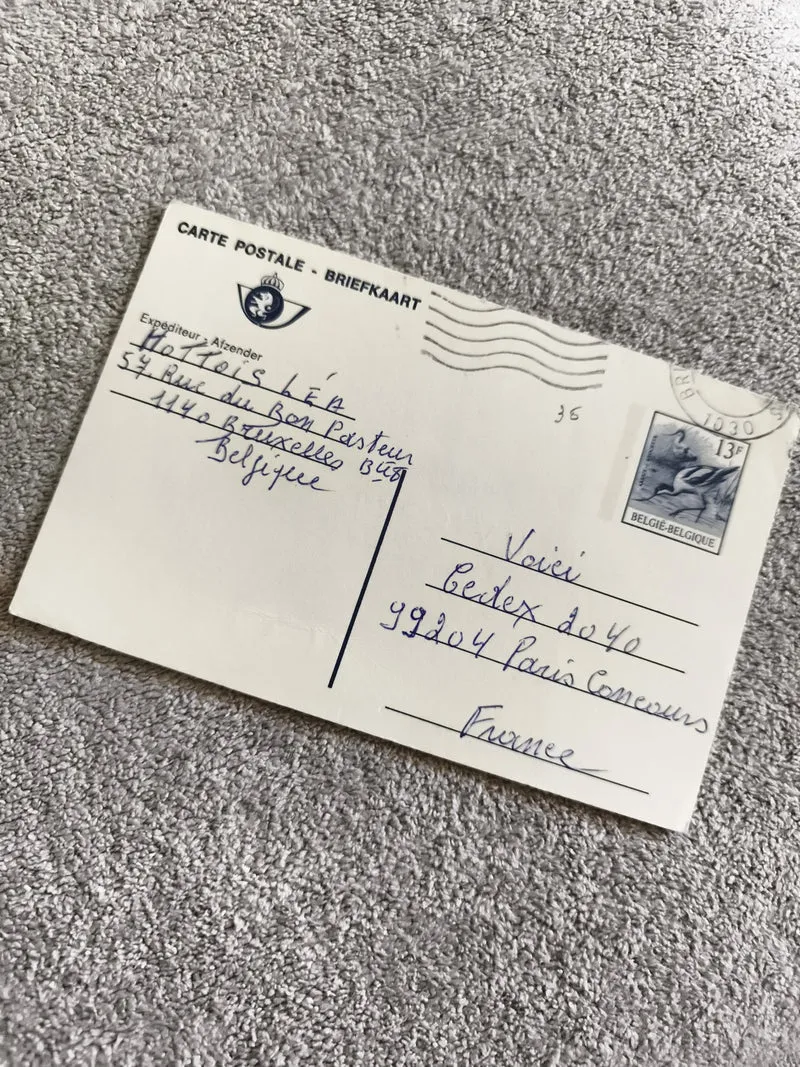 CARTE POSTALE - BRIEFKAART
Expéditeur - Afzender
HOTTOIS LÉA
57 Rue du Bon Pasteur
1140 Bruxelles
Belgique
36
BR
1030
13F
BELGIË-BELGIQUE
Voici
Cedex 2040
99204 Paris Concours
France